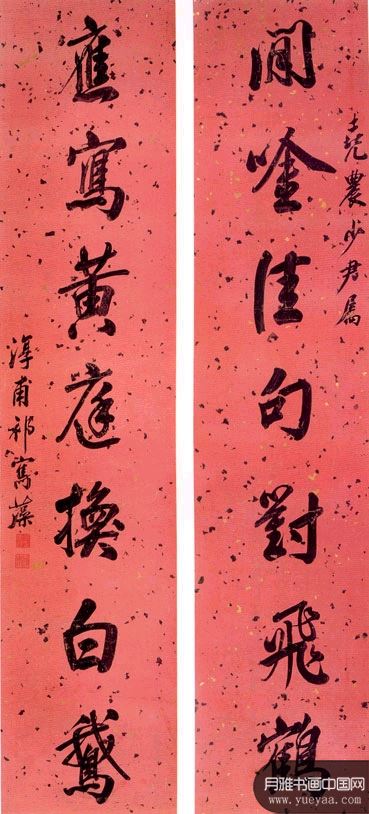 閒唫佳句對飛鶴
堯農少君屬
應寫黄庭換白鵝
淳甫祁寯藻
月雅书画中国网
www.yueyaa.com